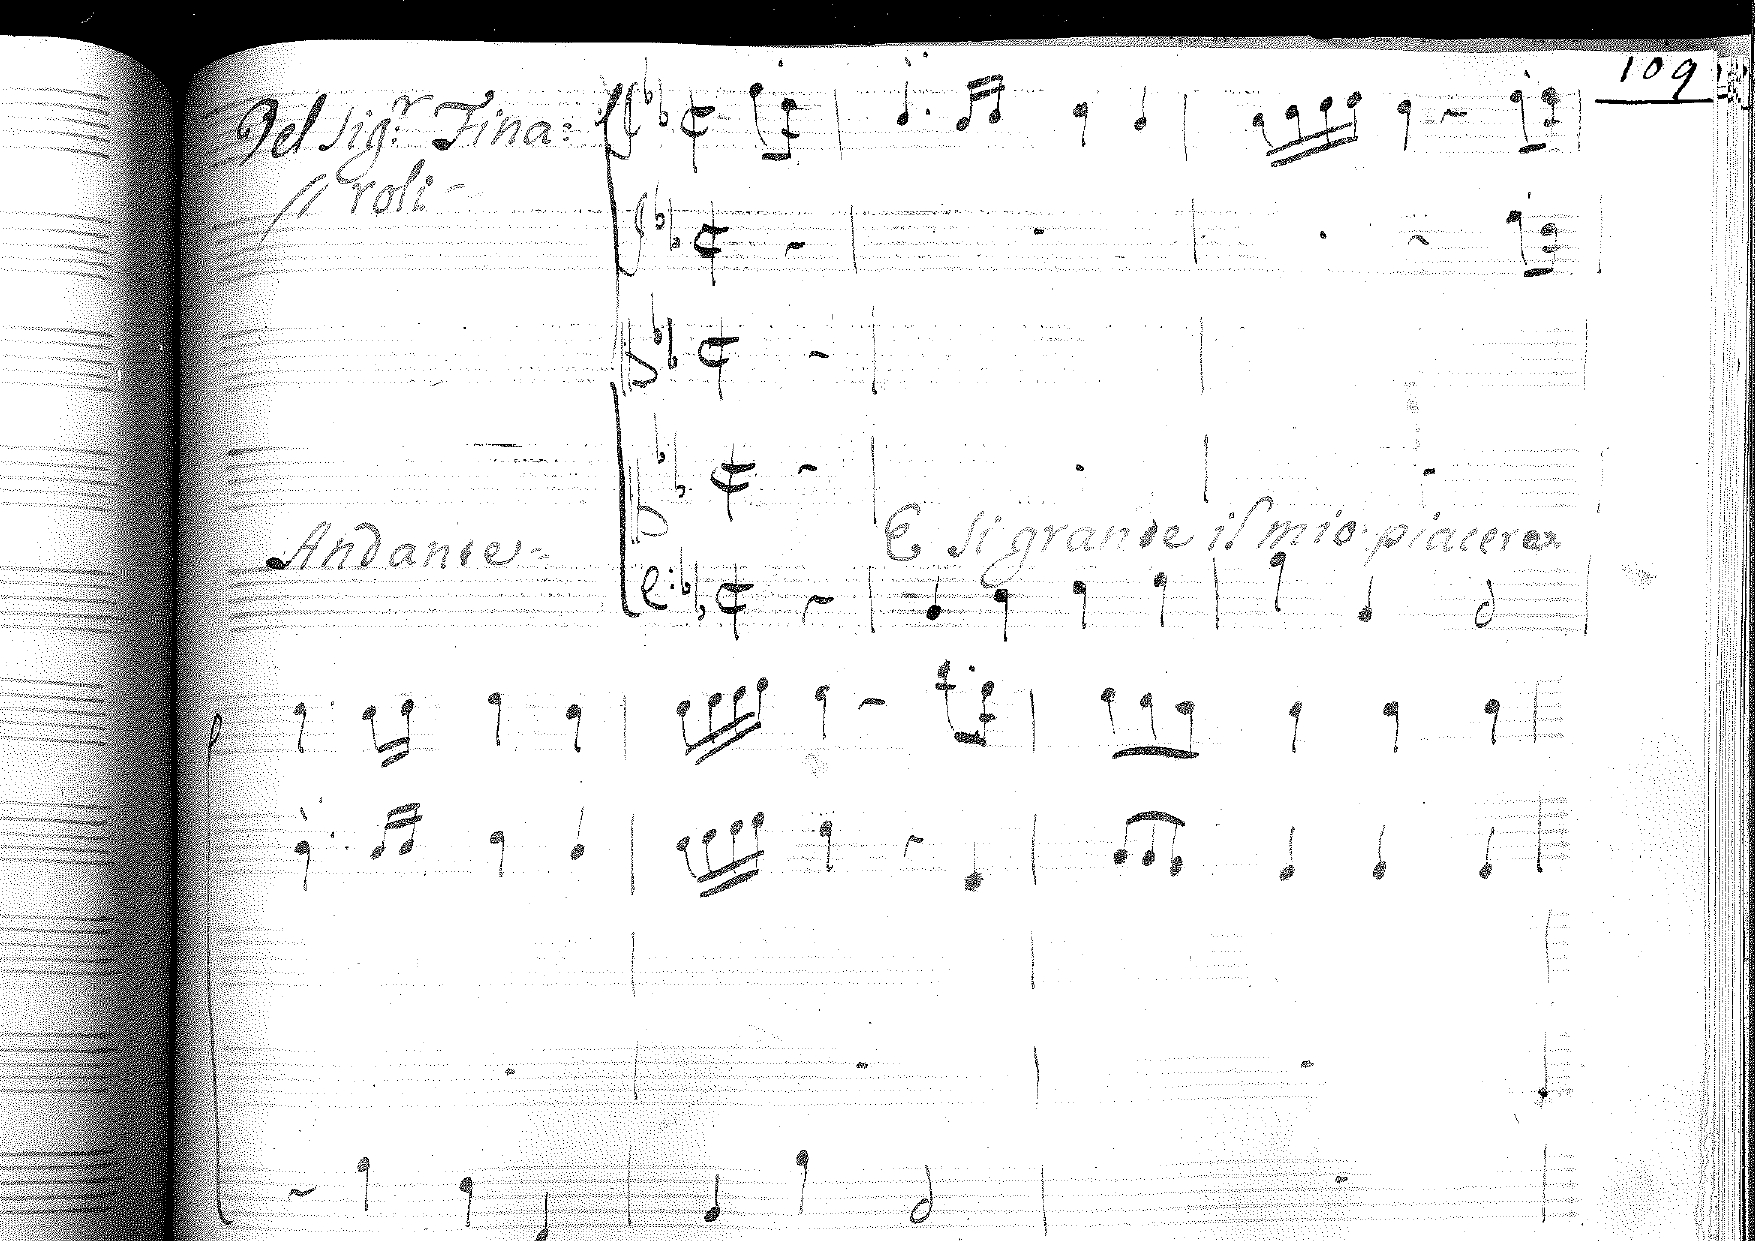 109
Del Sig.r Fina:
roli
Andante
E si grande il mio piacere